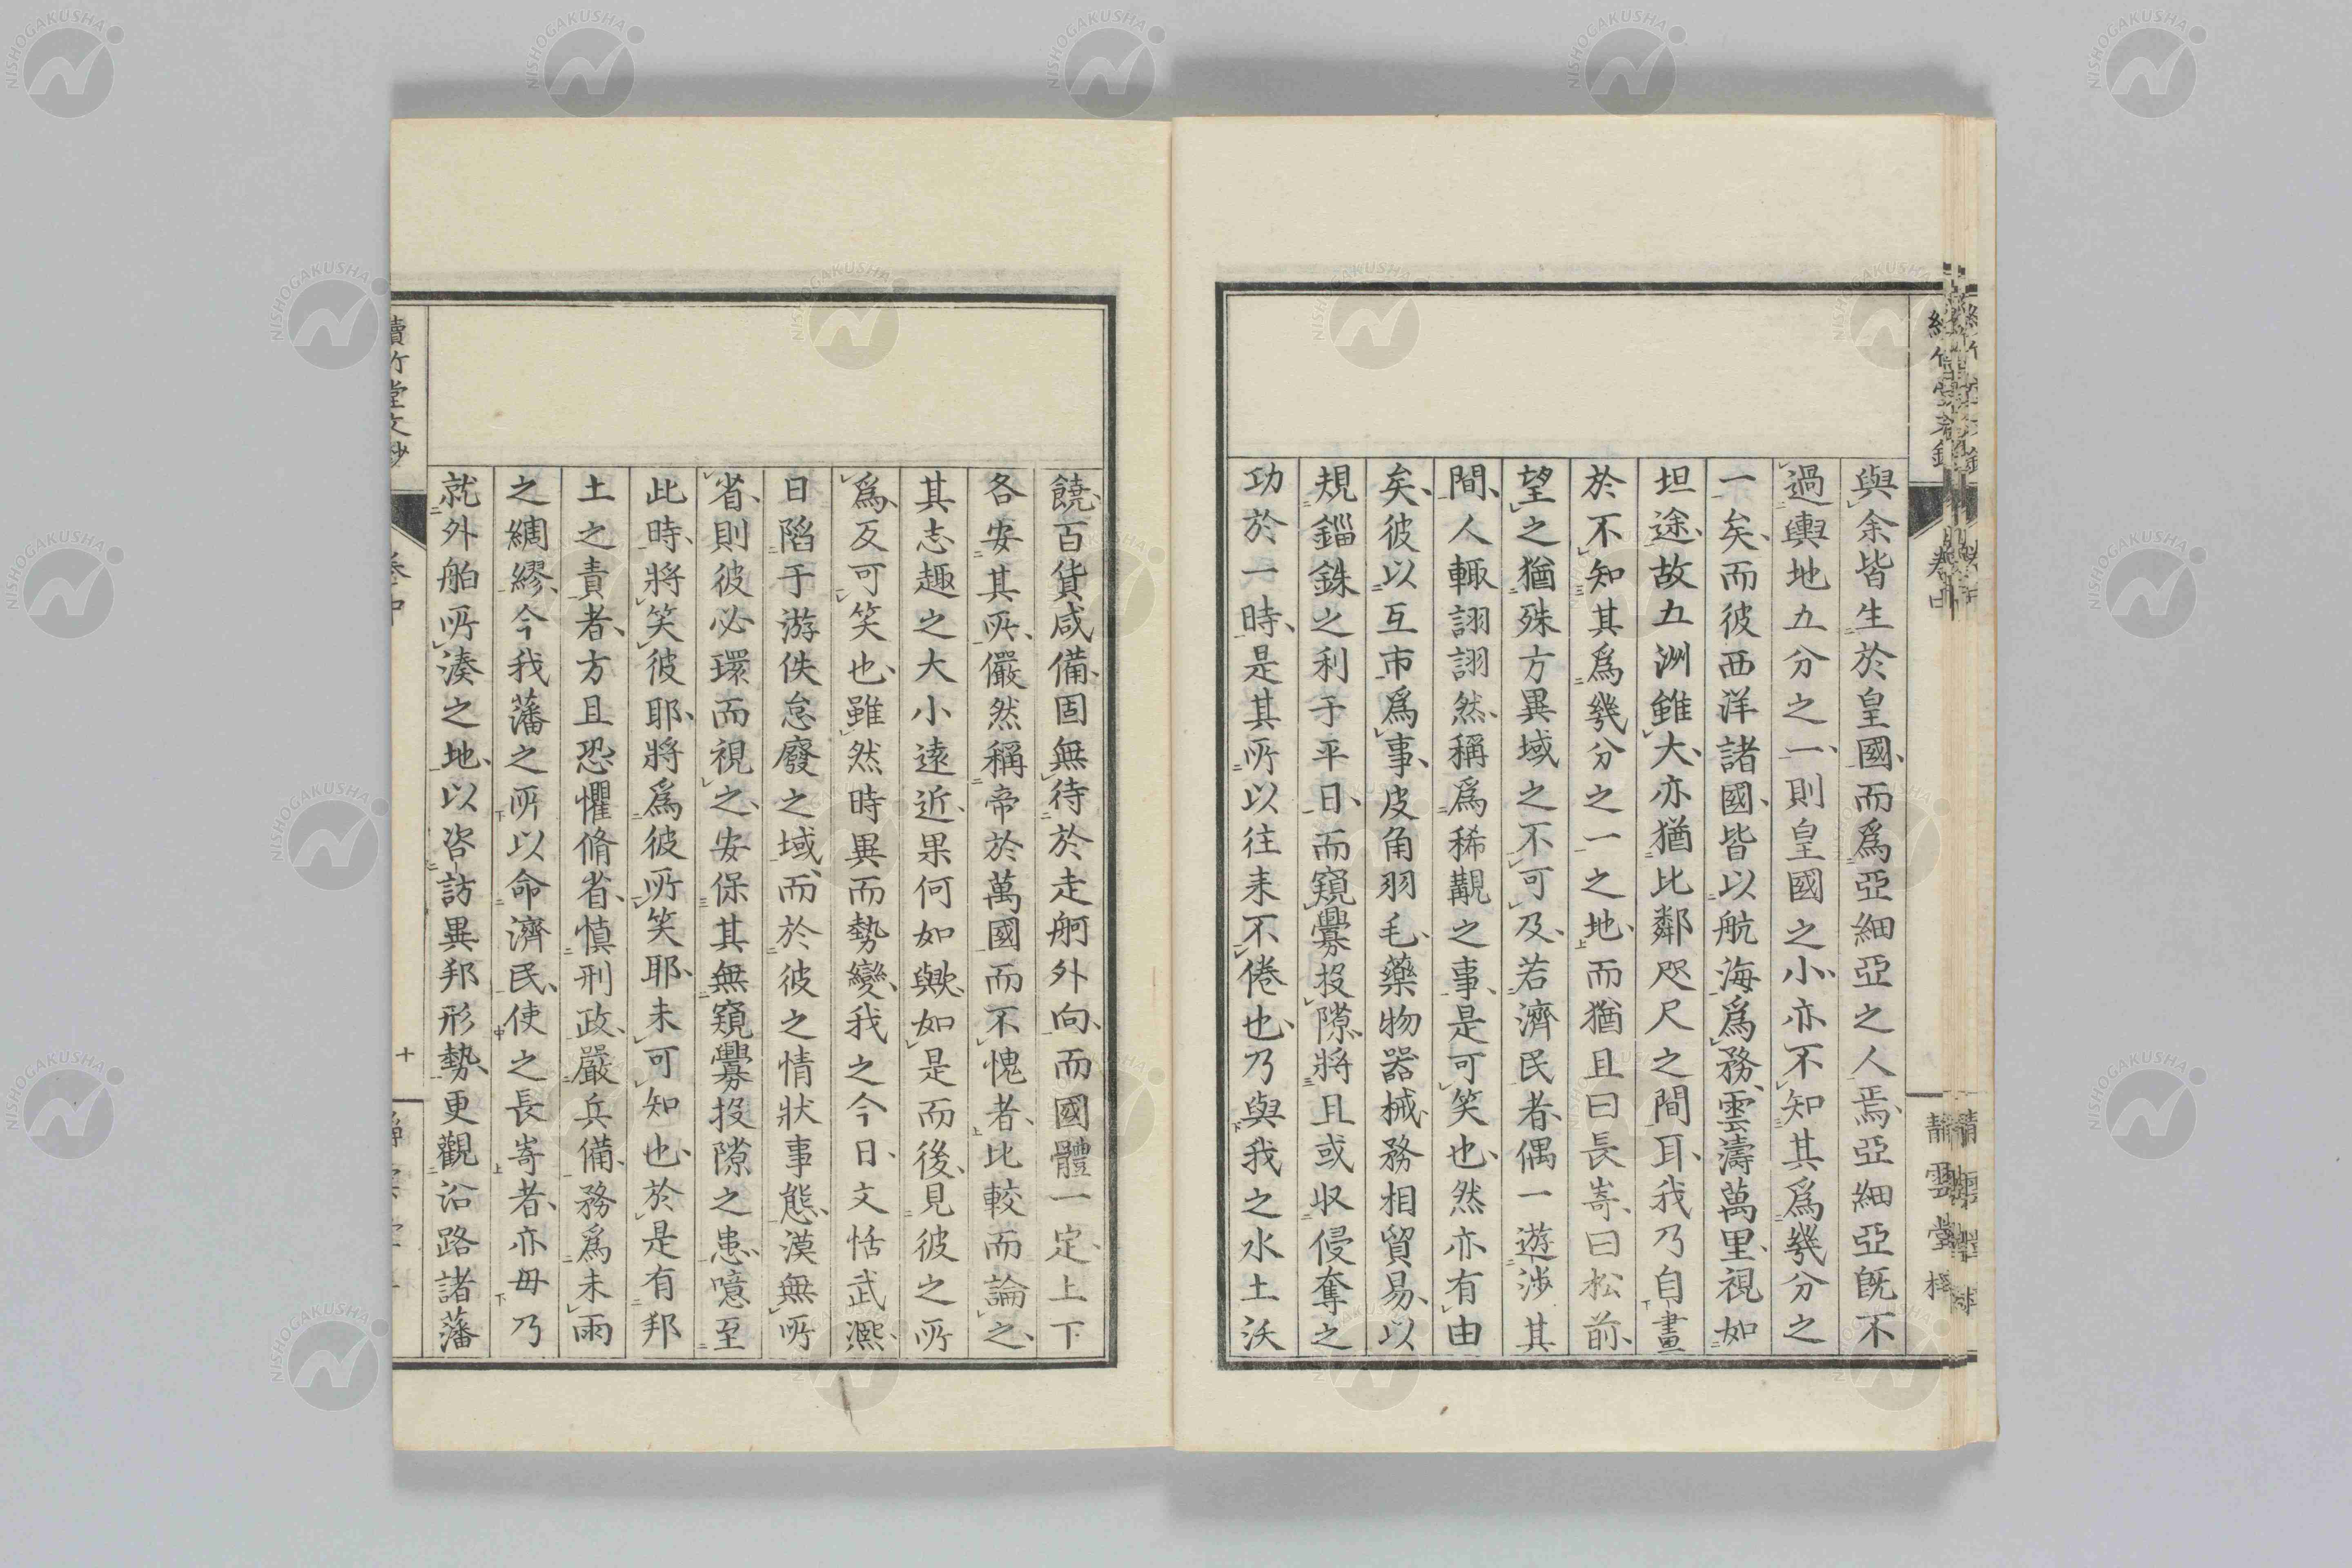 與余皆生於皇國、而爲亞細亞之人焉、亞細亞既不
過輿地五分之一、則皇國之小、亦不知其爲幾分之
一矣、而彼西洋諸國、皆以航海爲務、雲濤萬里、視如
坦途、故五洲雖大、亦猶比鄰咫尺之間耳、我乃自畫
於不知其爲幾分之一之地、而猶且曰長嵜、曰松前、
望之猶殊方異域之不可及、若濟民者、偶一遊渉其
間、人輙詡詡然、稱爲稀覯之事、是可笑也、然亦有由
矣、彼以互市爲事、皮角羽毛、藥物器械、務相貿易、以
規錙銖之利于平日、而窺釁投隙、將且或収侵奪之
功於一時、是其所以往来不倦也、乃與我之水土沃
饒、百貨咸備、固無待於走舸外向、而國體一定、上下
各安其所、儼然稱帝於萬國而不愧者、比較而論之、
其志趣之大小遠近、果何如歟、如是而後、見彼之所
爲、反可笑也、雖然時異而勢變、我之今日、文恬武凞、
日陷于游佚怠廢之域、而於彼之情狀事態、漠無所
省、則彼必環而視之、安保其無窺釁投隙之患、噫至
此時、將笑彼耶、將爲彼所笑耶、未可知也、於是有邦
土之責者、方且恐懼脩省、慎刑政、嚴兵備、務爲未雨
之綢繆、今我藩之所以命濟民、使之長嵜者、亦毋乃
就外舶所湊之地、以咨訪異邦形勢、更觀沿路諸藩
續竹堂文鈔
卷中
十
靜雲堂梓